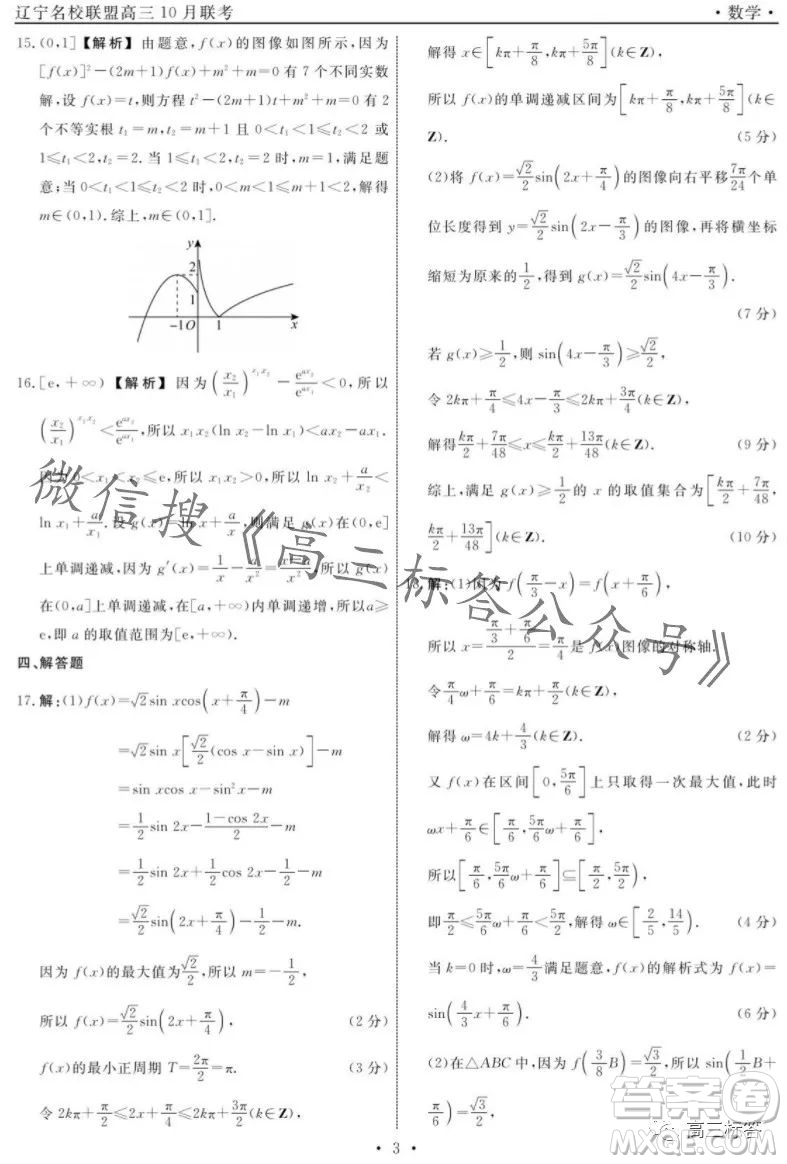 辽宁名校联盟高三10月联考
·数学·
15.(0,1]【解析】由题意,f(x)的图像如图所示,因为
[f(x)]²-(2m+1)f(x)+m²+m=0有7个不同实数
解,设f(x)=t,则方程t²-(2m+1)t+m²+m=0有2
个不等实根t₁=m,t₂=m+1且0<t₁<1≤t₂<2或
1≤t₁<2,t₂=2.当1≤t₁<2,t₂=2时,m=1,满足题
意;当0<t₁<1≤t₂<2时,0<m<1≤m+1<2,解得
m∈(0,1).综上,m∈(0,1].
y
2
1
-1 O 1 x
16.[e,+∞)【解析】因为(x₂/x₁)^(x₁x₂)-e^(ax₂)/e^(ax₁)<0,所以
(x₂/x₁)^(x₁x₂)<e^(ax₂)/e^(ax₁),所以x₁x₂(ln x₂-ln x₁)<ax₂-ax₁.
因为0<x₁<x₂≤e,所以x₁x₂>0,所以ln x₂+a/x₂<
ln x₁+a/x₁.设g(x)=ln x+a/x,则满足g(x)在(0,e]
上单调递减,因为g′(x)=1/x-a/x²=(x-a)/x²,所以g(x)
在(0,a]上单调递减,在[a,+∞)内单调递增,所以a≥
e,即a的取值范围为[e,+∞).
四、解答题
17.解:(1)f(x)=√2sin xcos(x+π/4)-m
=√2sin x[√2/2(cos x-sin x)]-m
=sin xcos x-sin²x-m
=1/2sin 2x-(1-cos 2x)/2-m
=1/2sin 2x+1/2cos 2x-1/2-m
=√2/2sin(2x+π/4)-1/2-m.
因为f(x)的最大值为√2/2,所以m=-1/2,
所以f(x)=√2/2sin(2x+π/4), (2分)
f(x)的最小正周期T=2π/2=π. (3分)
令2kπ+π/2≤2x+π/4≤2kπ+3π/2(k∈Z),
解得x∈[kπ+π/8,kπ+5π/8](k∈Z),
所以f(x)的单调递减区间为[kπ+π/8,kπ+5π/8](k∈
Z). (5分)
(2)将f(x)=√2/2sin(2x+π/4)的图像向右平移7π/24个单
位长度得到y=√2/2sin(2x-π/3)的图像,再将横坐标
缩短为原来的1/2,得到g(x)=√2/2sin(4x-π/3).
(7分)
若g(x)≥1/2,则sin(4x-π/3)≥√2/2,
令2kπ+π/4≤4x-π/3≤2kπ+3π/4(k∈Z),
解得kπ/2+7π/48≤x≤kπ/2+13π/48(k∈Z). (9分)
综上,满足g(x)≥1/2的x的取值集合为[kπ/2+7π/48,
kπ/2+13π/48](k∈Z). (10分)
18.解:(1)因为f(π/3-x)=f(x+π/6),
所以x=(π/3+π/6)/2=π/4是f(x)图像的对称轴.
令π/4ω+π/6=kπ+π/2(k∈Z),
解得ω=4k+4/3(k∈Z). (2分)
又f(x)在区间[0,5π/6]上只取得一次最大值,此时
ωx+π/6∈[π/6,5π/6ω+π/6],
所以[π/6,5π/6ω+π/6]⊆[π/6,5π/2),
即π/2≤5π/6ω+π/6<5π/2,解得ω∈[2/5,14/5). (4分)
当k=0时,ω=4/3满足题意,f(x)的解析式为f(x)=
sin(4/3x+π/6). (6分)
(2)在△ABC中,因为f(3/8B)=√3/2,所以sin(1/2B+
π/6)=√3/2,
·3·
微信搜《高三标答公众号》
答案圈
高三标答
MXQE.COM